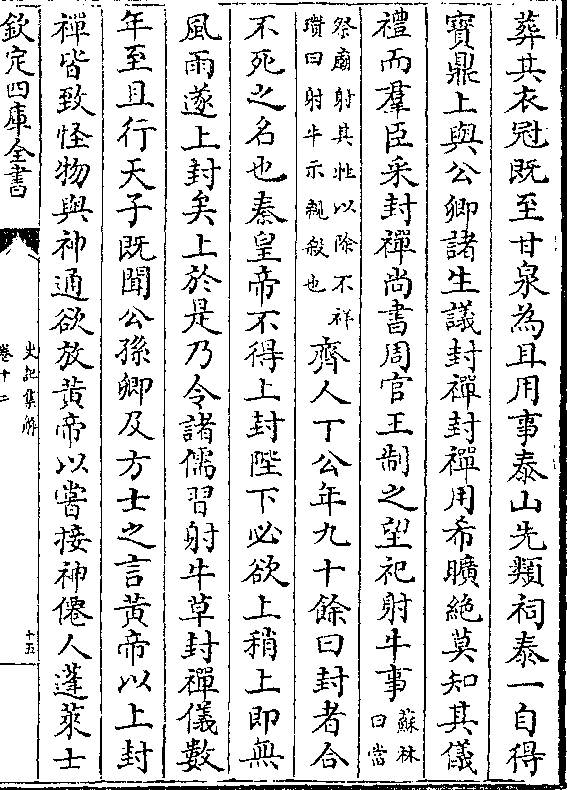 葬其衣冠既至甘泉為且用事泰山先類祠泰一自得
寳鼎上與公卿諸生議封禪封禪用希曠絶莫知其儀
禮而羣臣采封禪尚書周官王制之望祀射牛事
蘇林
曰當
祭廟射其牲以除不祥
瓚曰射牛示親殺也
齊人丁公年九十餘曰封者合
不死之名也秦皇帝不得上封陛下必欲上稍上即無
風雨遂上封矣上於是乃令諸儒習射牛草封禪儀數
年至且行天子既聞公孫卿及方士之言黄帝以上封
禪皆致怪物與神通欲放黄帝以嘗接神僊人蓬萊士
欽定四庫全書
史記集解
卷十二
十五